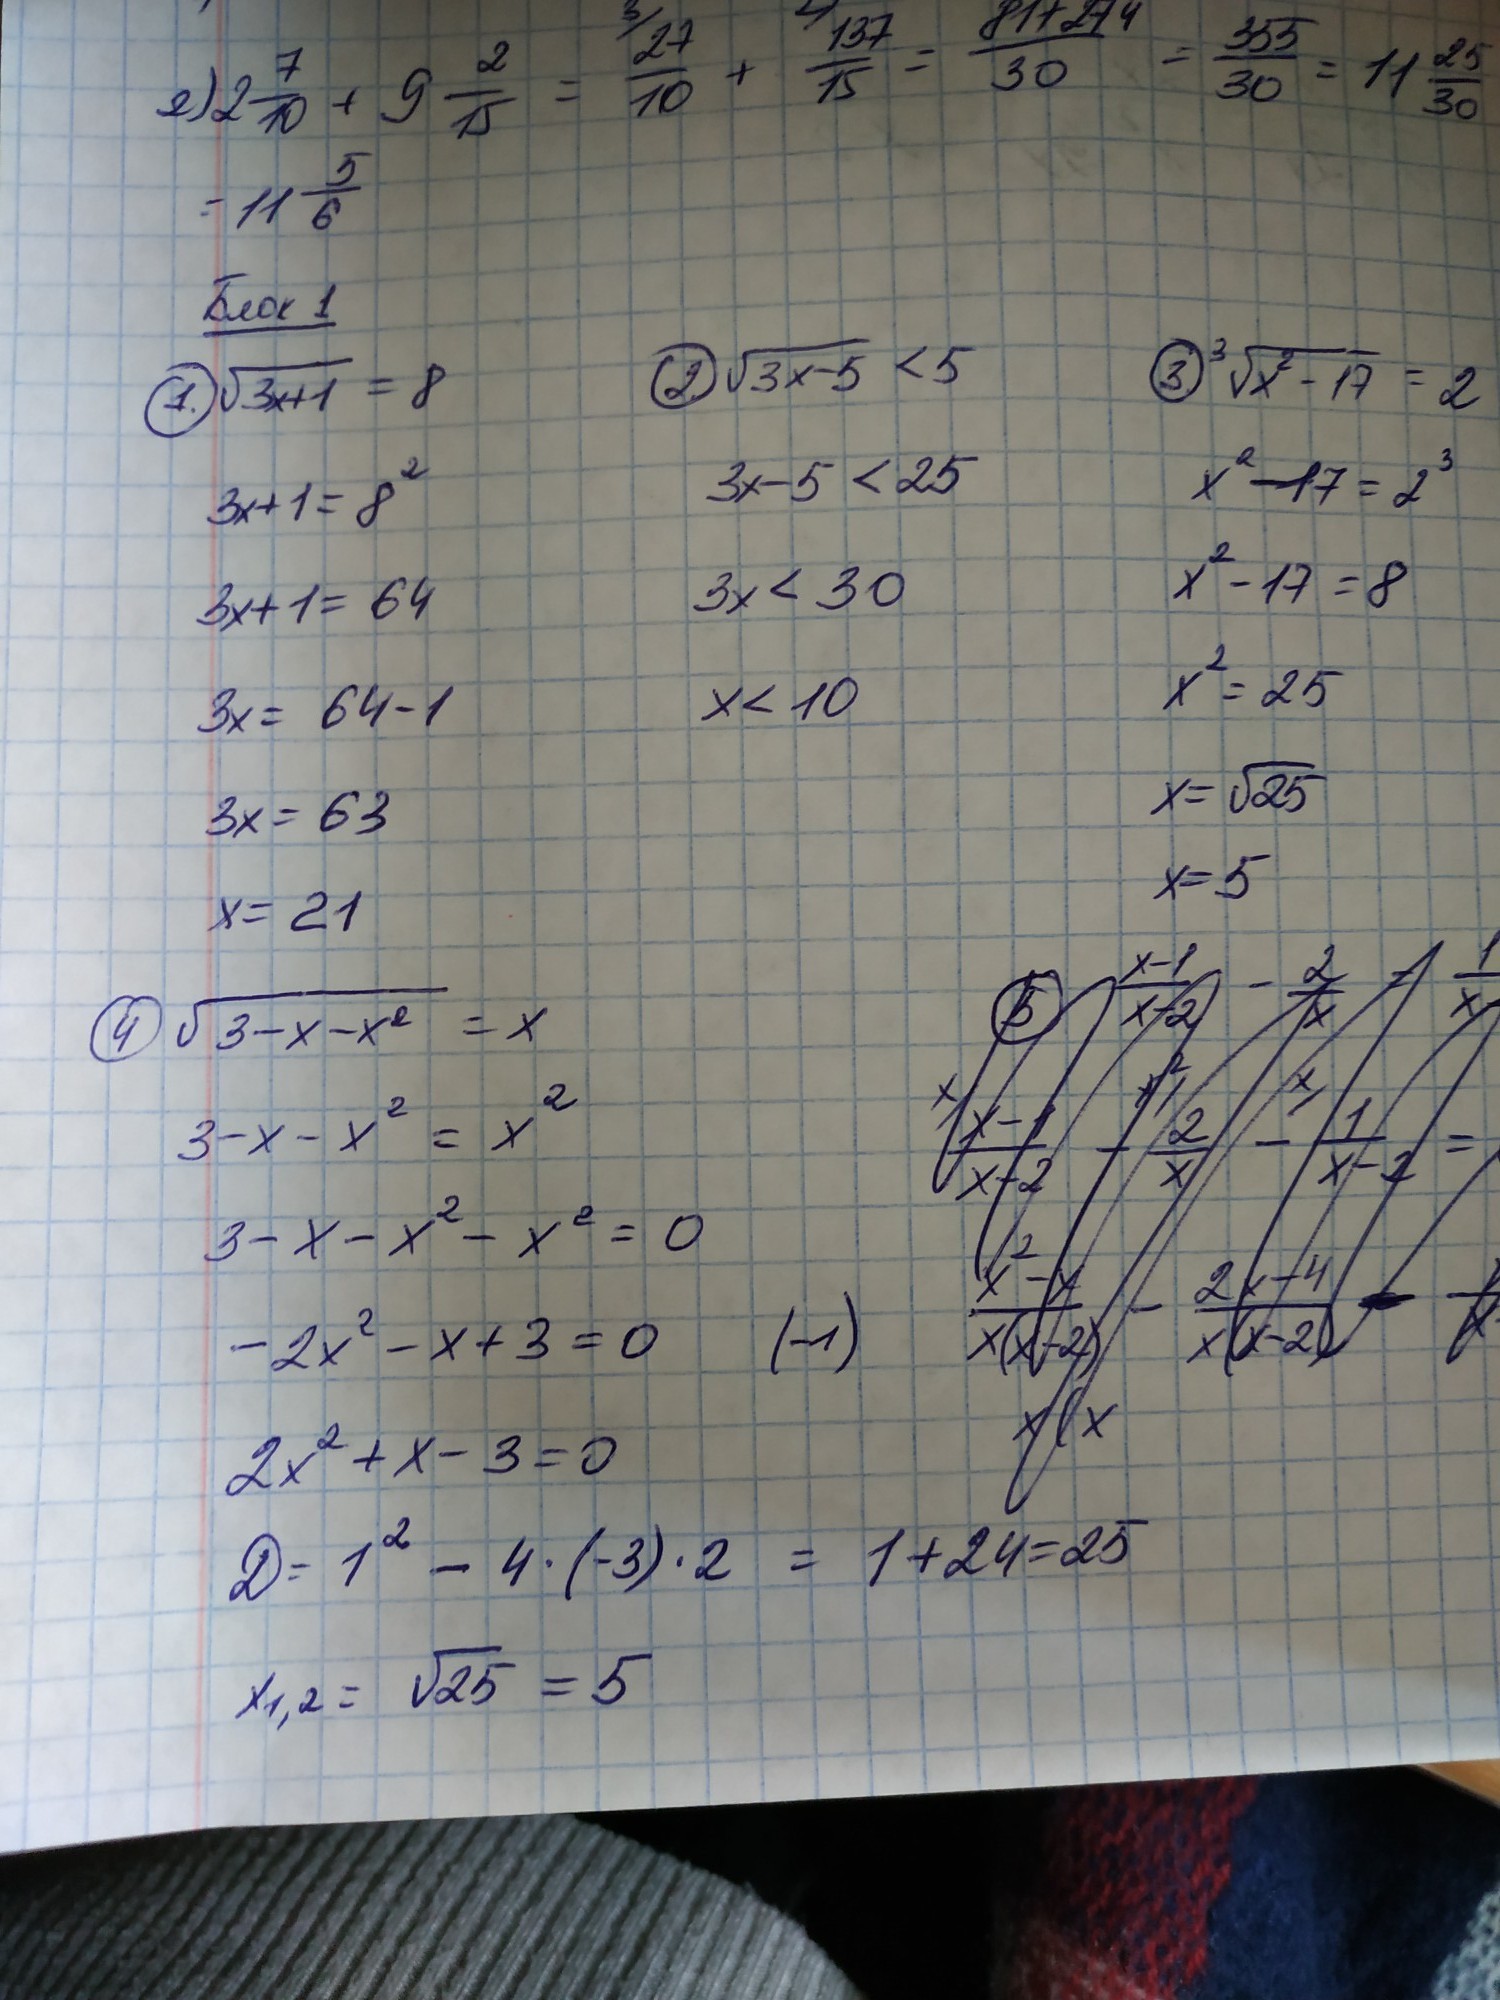 е) 2 7/10 + 9 2/15 = 27/10 + 137/15 = 81+274/30 = 355/30 = 11 25/30
= 11 5/6
Блок 1
1. √3x+1 = 8
3x+1 = 8²
3x+1 = 64
3x = 64-1
3x = 63
x = 21
2. √3x-5 < 5
3x-5 < 25
3x < 30
x < 10
3 ³√x²-17 = 2
x²-17 = 2³
x²-17 = 8
x² = 25
x = √25
x = 5
4 √3-x-x² = x
3-x-x² = x²
3-x-x²-x² = 0
-2x²-x+3 = 0 (-1)
2x²+x-3 = 0
D = 1² - 4·(-3)·2 = 1+24 = 25
x1,2 = √25 = 5
5 x-1/x-2 - 2/x
x-1/x-2 - 2/x - 1/x-2 =
x²-x/x(x-2) - 2x-4/x(x-2) -
x(x